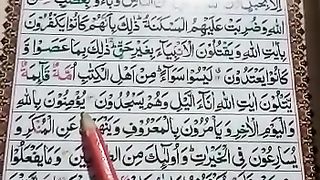 اللهِ وَضُرِبَتْ عَلَيْهِمُ الْمَسْكَنَةُ ذٰلِكَ بِاَنَّهُمْ كَانُوْا يَكْفُرُوْنَ
بِاٰيٰتِ اللهِ وَيَقْتُلُوْنَ الْاَنْبِيَآءَ بِغَيْرِ حَقٍّ ذٰلِكَ بِمَا عَصَوْا وَّ
كَانُوْا يَعْتَدُوْنَ لَيْسُوْا سَوَآءً مِنْ اَهْلِ الْكِتٰبِ اُمَّةٌ قَآئِمَةٌ
يَّتْلُوْنَ اٰيٰتِ اللهِ اٰنَآءَ الَّيْلِ وَهُمْ يَسْجُدُوْنَ يُؤْمِنُوْنَ بِاللهِ
وَالْيَوْمِ الْاٰخِرِ وَيَاْمُرُوْنَ بِالْمَعْرُوْفِ وَيَنْهَوْنَ عَنِ الْمُنْكَرِ وَ
يُسَارِعُوْنَ فِي الْخَيْرٰتِ وَاُولٰٓئِكَ مِنَ وَمَا يَفْعَلُوْا